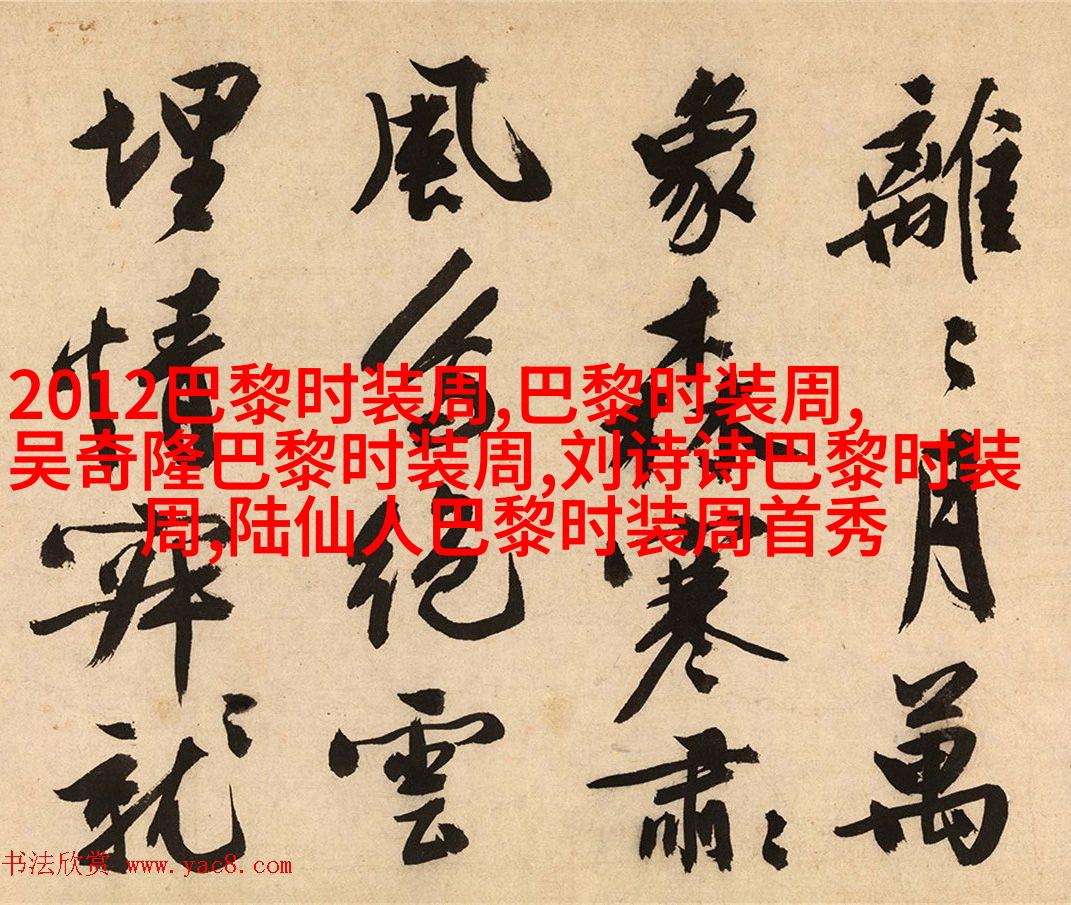 2012巴黎时装周,巴黎时装周,
吴奇隆巴黎时装周,刘诗诗巴黎时装
周,陆仙人巴黎时装周首秀
離〻月萬
象森寒肅〻
風絕雲
埋情就
书法欣赏 www.yac8.com